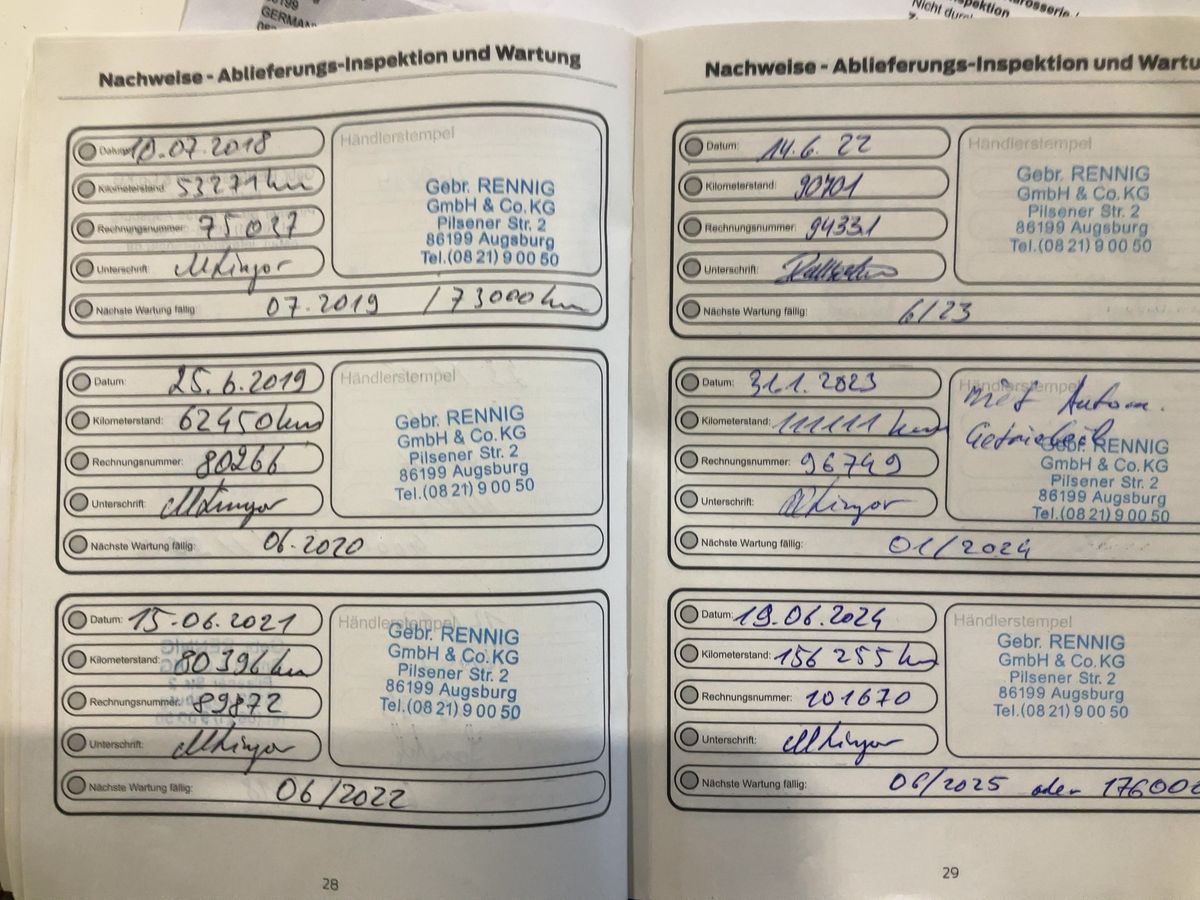 86199
GERMAN
Nicht
Nachweise - Ablieferungs-Inspektion und Wartung
Datum: 10.07.2018
Kilometerstand: 53271 km
Rechnungsnummer: 75027
Unterschrift:
Nächste Wartung fällig: 07.2019 / 73000 km
Händlerstempel
Gebr. RENNIG
GmbH & Co. KG
Pilsener Str. 2
86199 Augsburg
Tel.(08 21) 9 00 50
Datum: 25.6.2019
Kilometerstand: 62450 km
Rechnungsnummer: 80266
Unterschrift:
Nächste Wartung fällig: 06.2020
Händlerstempel
Gebr. RENNIG
GmbH & Co. KG
Pilsener Str. 2
86199 Augsburg
Tel.(08 21) 9 00 50
Datum: 15.06.2021
Kilometerstand: 80396 km
Rechnungsnummer: 89872
Unterschrift:
Nächste Wartung fällig: 06/2022
Händlerstempel
Gebr. RENNIG
GmbH & Co. KG
Pilsener Str. 2
86199 Augsburg
Tel.(08 21) 9 00 50
28
Nachweise - Ablieferungs-Inspektion und Wartu
Datum: 14.6.22
Kilometerstand: 90701
Rechnungsnummer: 94331
Unterschrift:
Nächste Wartung fällig: 6/23
Händlerstempel
Gebr. RENNIG
GmbH & Co. KG
Pilsener Str. 2
86199 Augsburg
Tel.(08 21) 9 00 50
Datum: 31.1.2023
Kilometerstand: 111111 km
Rechnungsnummer: 96749
Unterschrift:
Nächste Wartung fällig: 01/2024
Händlerstempel
mit Autom.
Gebr. RENNIG
GmbH & Co. KG
Pilsener Str. 2
86199 Augsburg
Tel.(08 21) 9 00 50
Datum: 19.06.2024
Kilometerstand: 156255 km
Rechnungsnummer: 101670
Unterschrift:
Nächste Wartung fällig: 06/2025 oder 176000
Händlerstempel
Gebr. RENNIG
GmbH & Co. KG
Pilsener Str. 2
86199 Augsburg
Tel.(08 21) 9 00 50
29